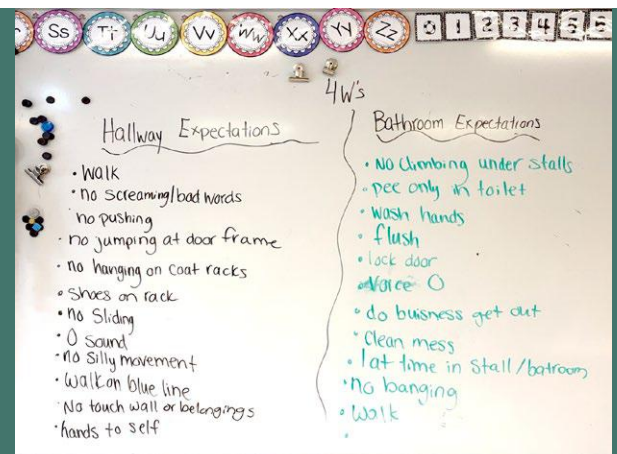 Ss Tt Uu Vv Ww Xx Yy Zz 0 1 2 3 4 5
4W's
Hallway Expectations
• Walk
• no screaming/bad words
no pushing
• no jumping at door frame
• no hanging on coat racks
• Shoes on rack
• no Sliding
• 0 sound
• no silly movement
• Walk on blue line
• No touch wall or belongings
• hands to self
Bathroom Expectations
• NO climbing under stalls
• pee only in toilet
• Wash hands
• flush
• lock door
• Voice 0
• do buisness get out
• Clean mess
• 1 at time in stall/batroom
• no banging
• Walk
•